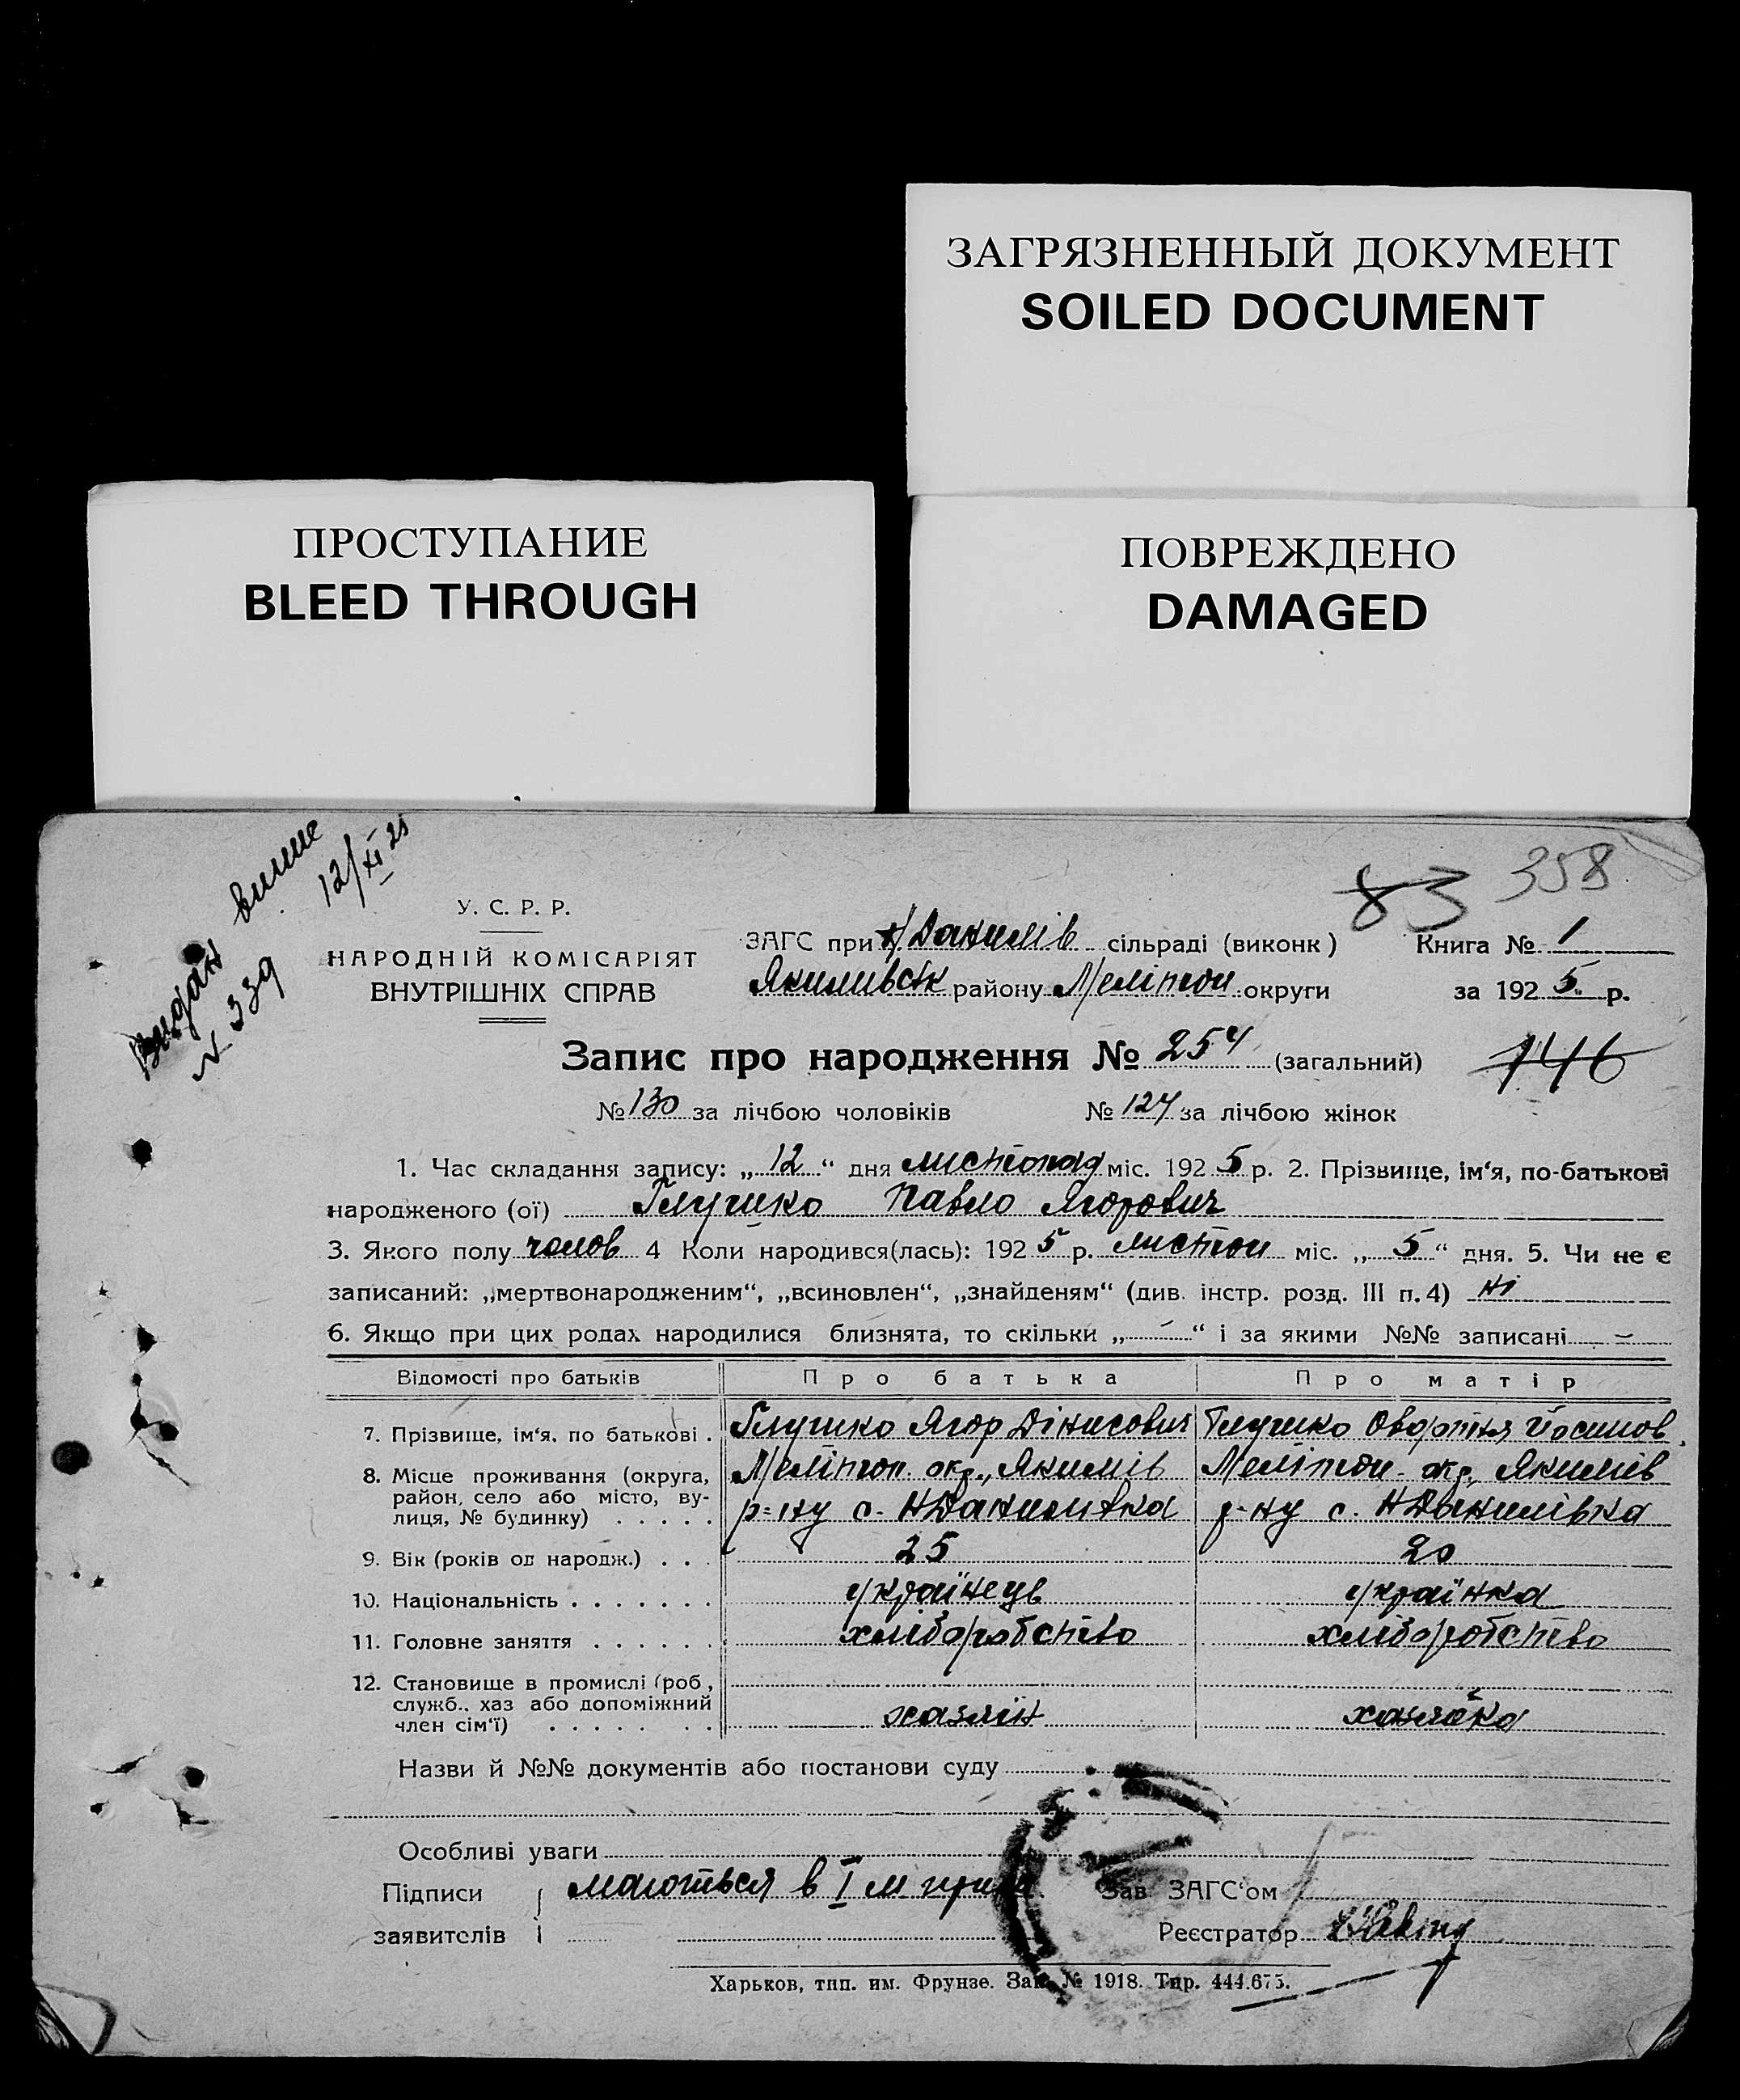 ЗАГРЯЗНЕННЫЙ ДОКУМЕНТ
SOILED DOCUMENT
ПРОСТУПАНИЕ
BLEED THROUGH
ПОВРЕЖДЕНО
DAMAGED
Видан випис
№ 339
12/XI 25
83 358
У. С. Р. Р.
НАРОДНІЙ КОМІСАРІЯТ
ВНУТРІШНІХ СПРАВ
ЗАГС при Н/Данилів сільраді (виконк) Книга № 1
Якимівськ району Мелітоп округи за 192 5 р.
Запис про народження № 254 (загальний) 146
№ 130 за лічбою чоловіків № 124 за лічбою жінок
1. Час складання запису: „ 12 “ дня листопад міс. 192 5 р. 2. Прізвище, ім‘я, по-батькові
народженого (ої) Глушко Павло Ягорович
3. Якого полу чолов 4 Коли народився(лась): 192 5 р. листоп міс. „ 5 “ дня. 5. Чи не є
записаний: „мертвонародженим“, „всиновлен“, „знайденям“ (див. інстр. розд. III п. 4) ні
6. Якщо при цих родах народилися близнята, то скільки „ - “ і за якими №№ записані -
Відомості про батьків Про батька Про матір
7. Прізвище, ім‘я, по батькові . Глушко Ягор Дінисович Глушко Йосипов
8. Місце проживання (округа, Мелітоп. окр., Якимів Мелітоп. окр., Якимів
район, село або місто, ву- р=ну с. НДанилівка р-ну с. НДанилівка
лиця, № будинку) . . . . .
9. Вік (років од народж.) . . 25 20
10. Національність . . . . . . . українець українка
11. Головне заняття . . . . . . хліборобство хліборобство
12. Становище в промислі (роб.,
служб., хаз або допоміжний
член сім‘ї) . . . . . . . хазяїн хазяйка
Назви й №№ документів або постанови суду
Особливі уваги
Підписи маються в I м Зав ЗАГС‘ом
заявителів Реєстратор
Харьков, тип. им. Фрунзе. Зак. № 1918. Тир. 444.675.